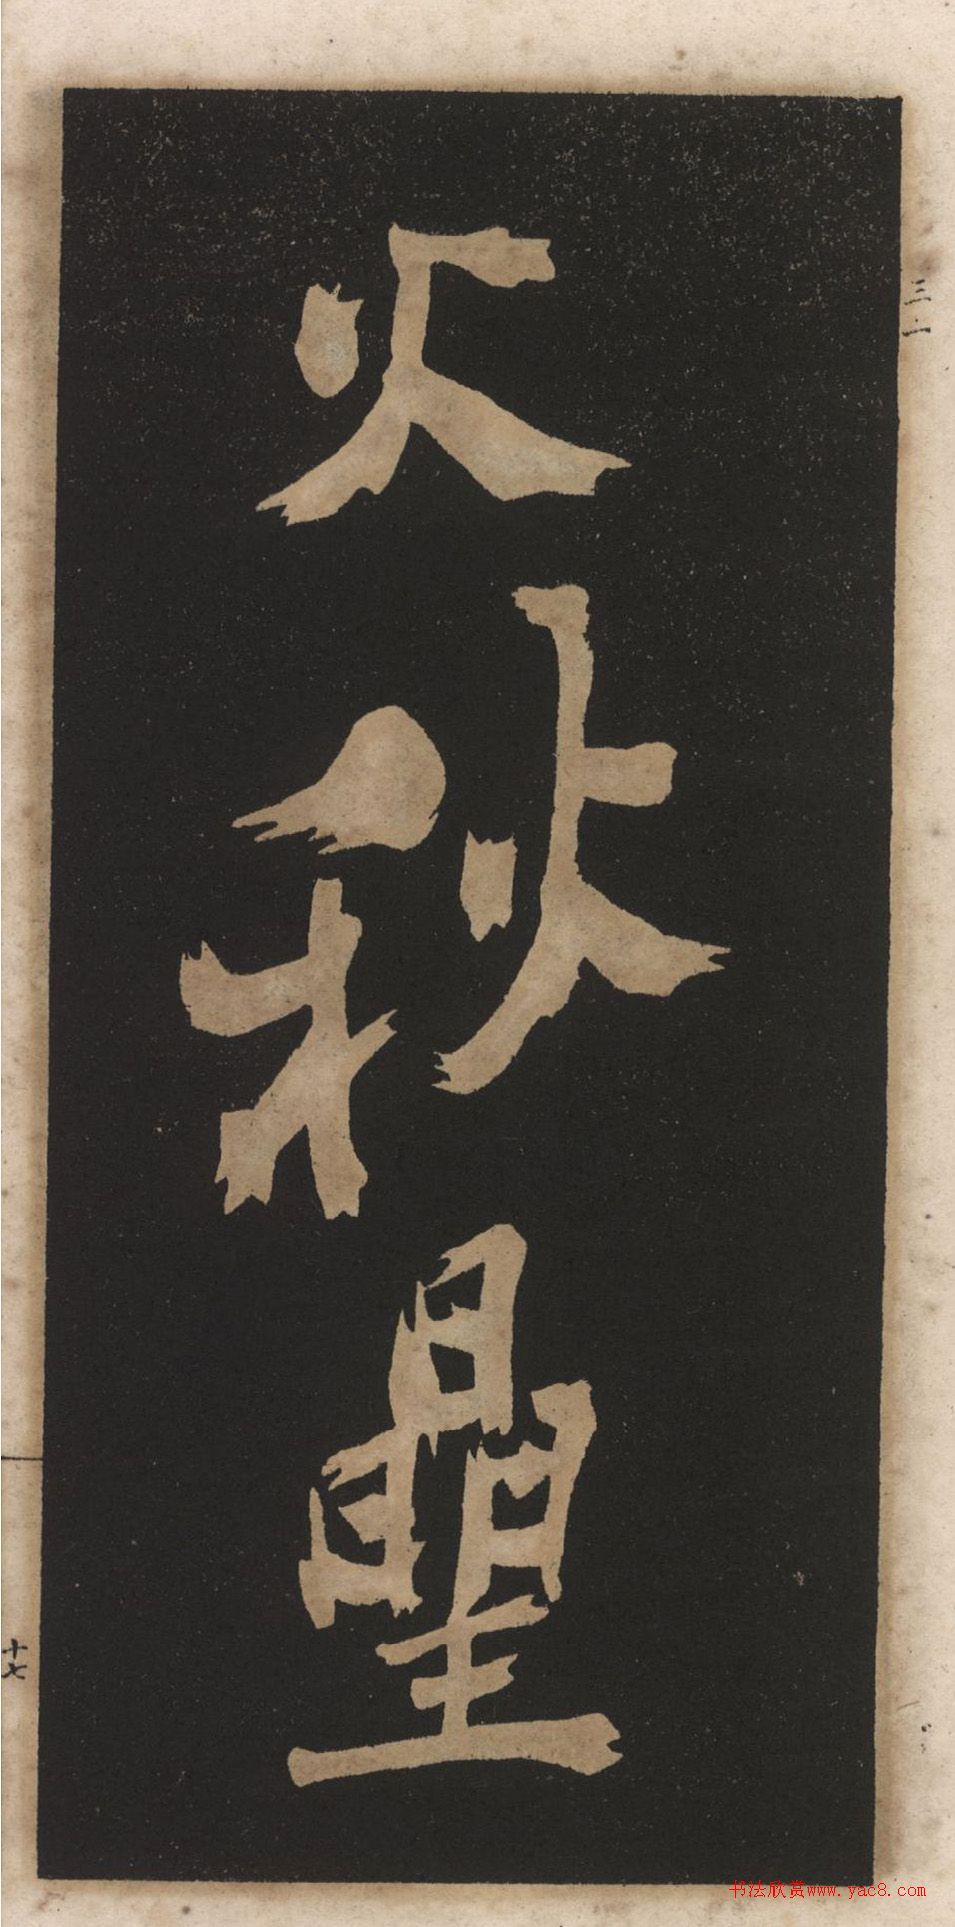 火
秋
曐
十七
书法欣赏www.yac8.com